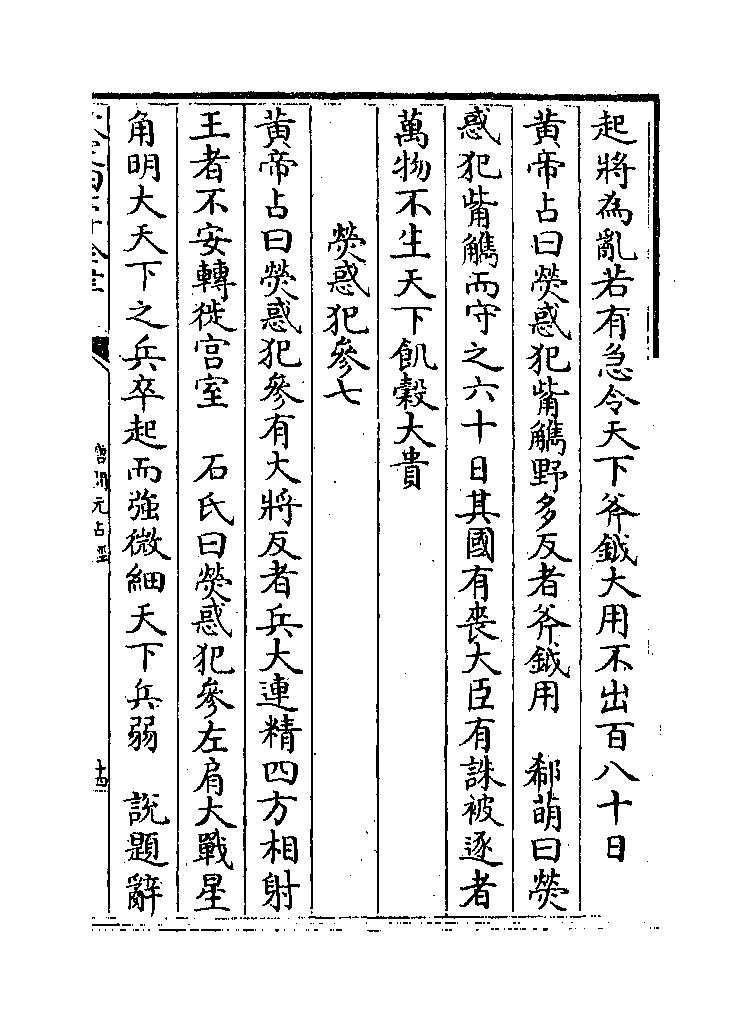 起將為亂若有急令天下斧鉞大用不出百八十日
黄帝占曰熒惑犯觜觽野多反者斧鉞用　郗萌曰熒
惑犯觜觽而守之六十日其國有喪大臣有誅被逐者
萬物不生天下飢穀大貴
熒惑犯參七
黄帝占曰熒惑犯參有大將反者兵大連精四方相射
王者不安轉徙宫室　石氏曰熒惑犯參左肩大戰星
角明大天下之兵卒起而強微細天下兵弱　說題辭
唐開元占經
十四